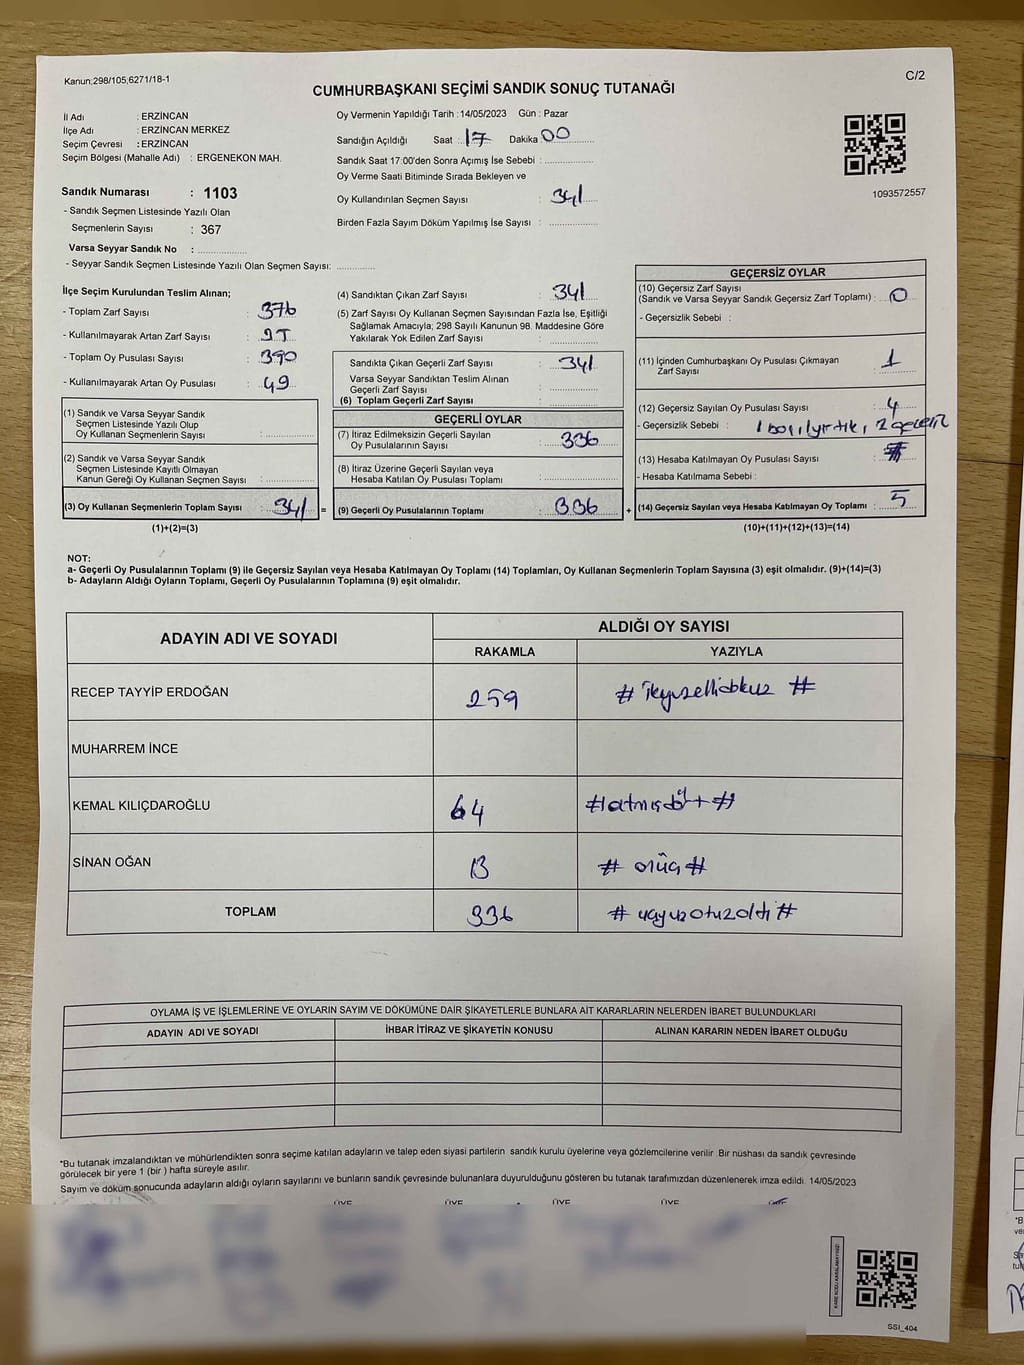 Kanun;298/105,6271/18-1
C/2
CUMHURBAŞKANI SEÇİMİ SANDIK SONUÇ TUTANAĞI
İl Adı : ERZİNCAN
İlçe Adı : ERZİNCAN MERKEZ
Seçim Çevresi : ERZİNCAN
Seçim Bölgesi (Mahalle Adı) : ERGENEKON MAH.
Sandık Numarası : 1103
- Sandık Seçmen Listesinde Yazılı Olan
Seçmenlerin Sayısı : 367
Varsa Seyyar Sandık No :
- Seyyar Sandık Seçmen Listesinde Yazılı Olan Seçmen Sayısı:
Oy Vermenin Yapıldığı Tarih : 14/05/2023 Gün : Pazar
Sandığın Açıldığı Saat : 17 Dakika 00
Sandık Saat 17:00'den Sonra Açımış İse Sebebi :
Oy Verme Saati Bitiminde Sırada Bekleyen ve
Oy Kullandırılan Seçmen Sayısı : 341
Birden Fazla Sayım Döküm Yapılmış İse Sayısı :
1093572557
İlçe Seçim Kurulundan Teslim Alınan;
- Toplam Zarf Sayısı : 376
- Kullanılmayarak Artan Zarf Sayısı :
- Toplam Oy Pusulası Sayısı : 390
- Kullanılmayarak Artan Oy Pusulası : 49
(1) Sandık ve Varsa Seyyar Sandık
Seçmen Listesinde Yazılı Olup
Oy Kullanan Seçmenlerin Sayısı :
(2) Sandık ve Varsa Seyyar Sandık
Seçmen Listesinde Kayıtlı Olmayan
Kanun Gereği Oy Kullanan Seçmen Sayısı :
(3) Oy Kullanan Seçmenlerin Toplam Sayısı : 341 =
(1)+(2)=(3)
(4) Sandıktan Çıkan Zarf Sayısı : 341
(5) Zarf Sayısı Oy Kullanan Seçmen Sayısından Fazla İse, Eşitliği
Sağlamak Amacıyla; 298 Sayılı Kanunun 98. Maddesine Göre
Yakılarak Yok Edilen Zarf Sayısı :
Sandıkta Çıkan Geçerli Zarf Sayısı : 341
Varsa Seyyar Sandıktan Teslim Alınan
Geçerli Zarf Sayısı :
(6) Toplam Geçerli Zarf Sayısı :
GEÇERLİ OYLAR
(7) İtiraz Edilmeksizin Geçerli Sayılan
Oy Pusulalarının Sayısı : 336
(8) İtiraz Üzerine Geçerli Sayılan veya
Hesaba Katılan Oy Pusulası Toplamı :
(9) Geçerli Oy Pusulalarının Toplamı : 336 +
GEÇERSİZ OYLAR
(10) Geçersiz Zarf Sayısı
(Sandık ve Varsa Seyyar Sandık Geçersiz Zarf Toplamı) : 0
- Geçersizlik Sebebi :
(11) İçinden Cumhurbaşkanı Oy Pusulası Çıkmayan
Zarf Sayısı : 1
(12) Geçersiz Sayılan Oy Pusulası Sayısı : 4
- Geçersizlik Sebebi : 1 boş, 1 yırtık, 2
(13) Hesaba Katılmayan Oy Pusulası Sayısı :
- Hesaba Katılmama Sebebi :
(14) Geçersiz Sayılan veya Hesaba Katılmayan Oy Toplamı : 5
(10)+(11)+(12)+(13)=(14)
NOT:
a- Geçerli Oy Pusulalarının Toplamı (9) ile Geçersiz Sayılan veya Hesaba Katılmayan Oy Toplamı (14) Toplamları, Oy Kullanan Seçmenlerin Toplam Sayısına (3) eşit olmalıdır. (9)+(14)=(3)
b- Adayların Aldığı Oyların Toplamı, Geçerli Oy Pusulalarının Toplamına (9) eşit olmalıdır.
ADAYIN ADI VE SOYADI ALDIĞI OY SAYISI
RAKAMLA YAZIYLA
RECEP TAYYİP ERDOĞAN 259 # ikiyüzellidokuz #
MUHARREM İNCE
KEMAL KILIÇDAROĞLU 64 # altmışdört #
SİNAN OĞAN 13 # onüç #
TOPLAM 336 # üçyüzotuzaltı #
OYLAMA İŞ VE İŞLEMLERİNE VE OYLARIN SAYIM VE DÖKÜMÜNE DAİR ŞİKAYETLERLE BUNLARA AİT KARARLARIN NELERDEN İBARET BULUNDUKLARI
ADAYIN ADI VE SOYADI İHBAR İTİRAZ VE ŞİKAYETİN KONUSU ALINAN KARARIN NEDEN İBARET OLDUĞU
*Bu tutanak imzalandıktan ve mühürlendikten sonra seçime katılan adayların ve talep eden siyasi partilerin sandık kurulu üyelerine veya gözlemcilerine verilir. Bir nüshası da sandık çevresinde
görülecek bir yere 1 (bir ) hafta süreyle asılır.
Sayım ve döküm sonucunda adayların aldığı oyların sayılarını ve bunların sandık çevresinde bulunanlara duyurulduğunu gösteren bu tutanak tarafımızdan düzenlenerek imza edildi. 14/05/2023
ÜYE ÜYE ÜYE ÜYE
KARE KODU KARALAMAYINIZ!
SSI_404